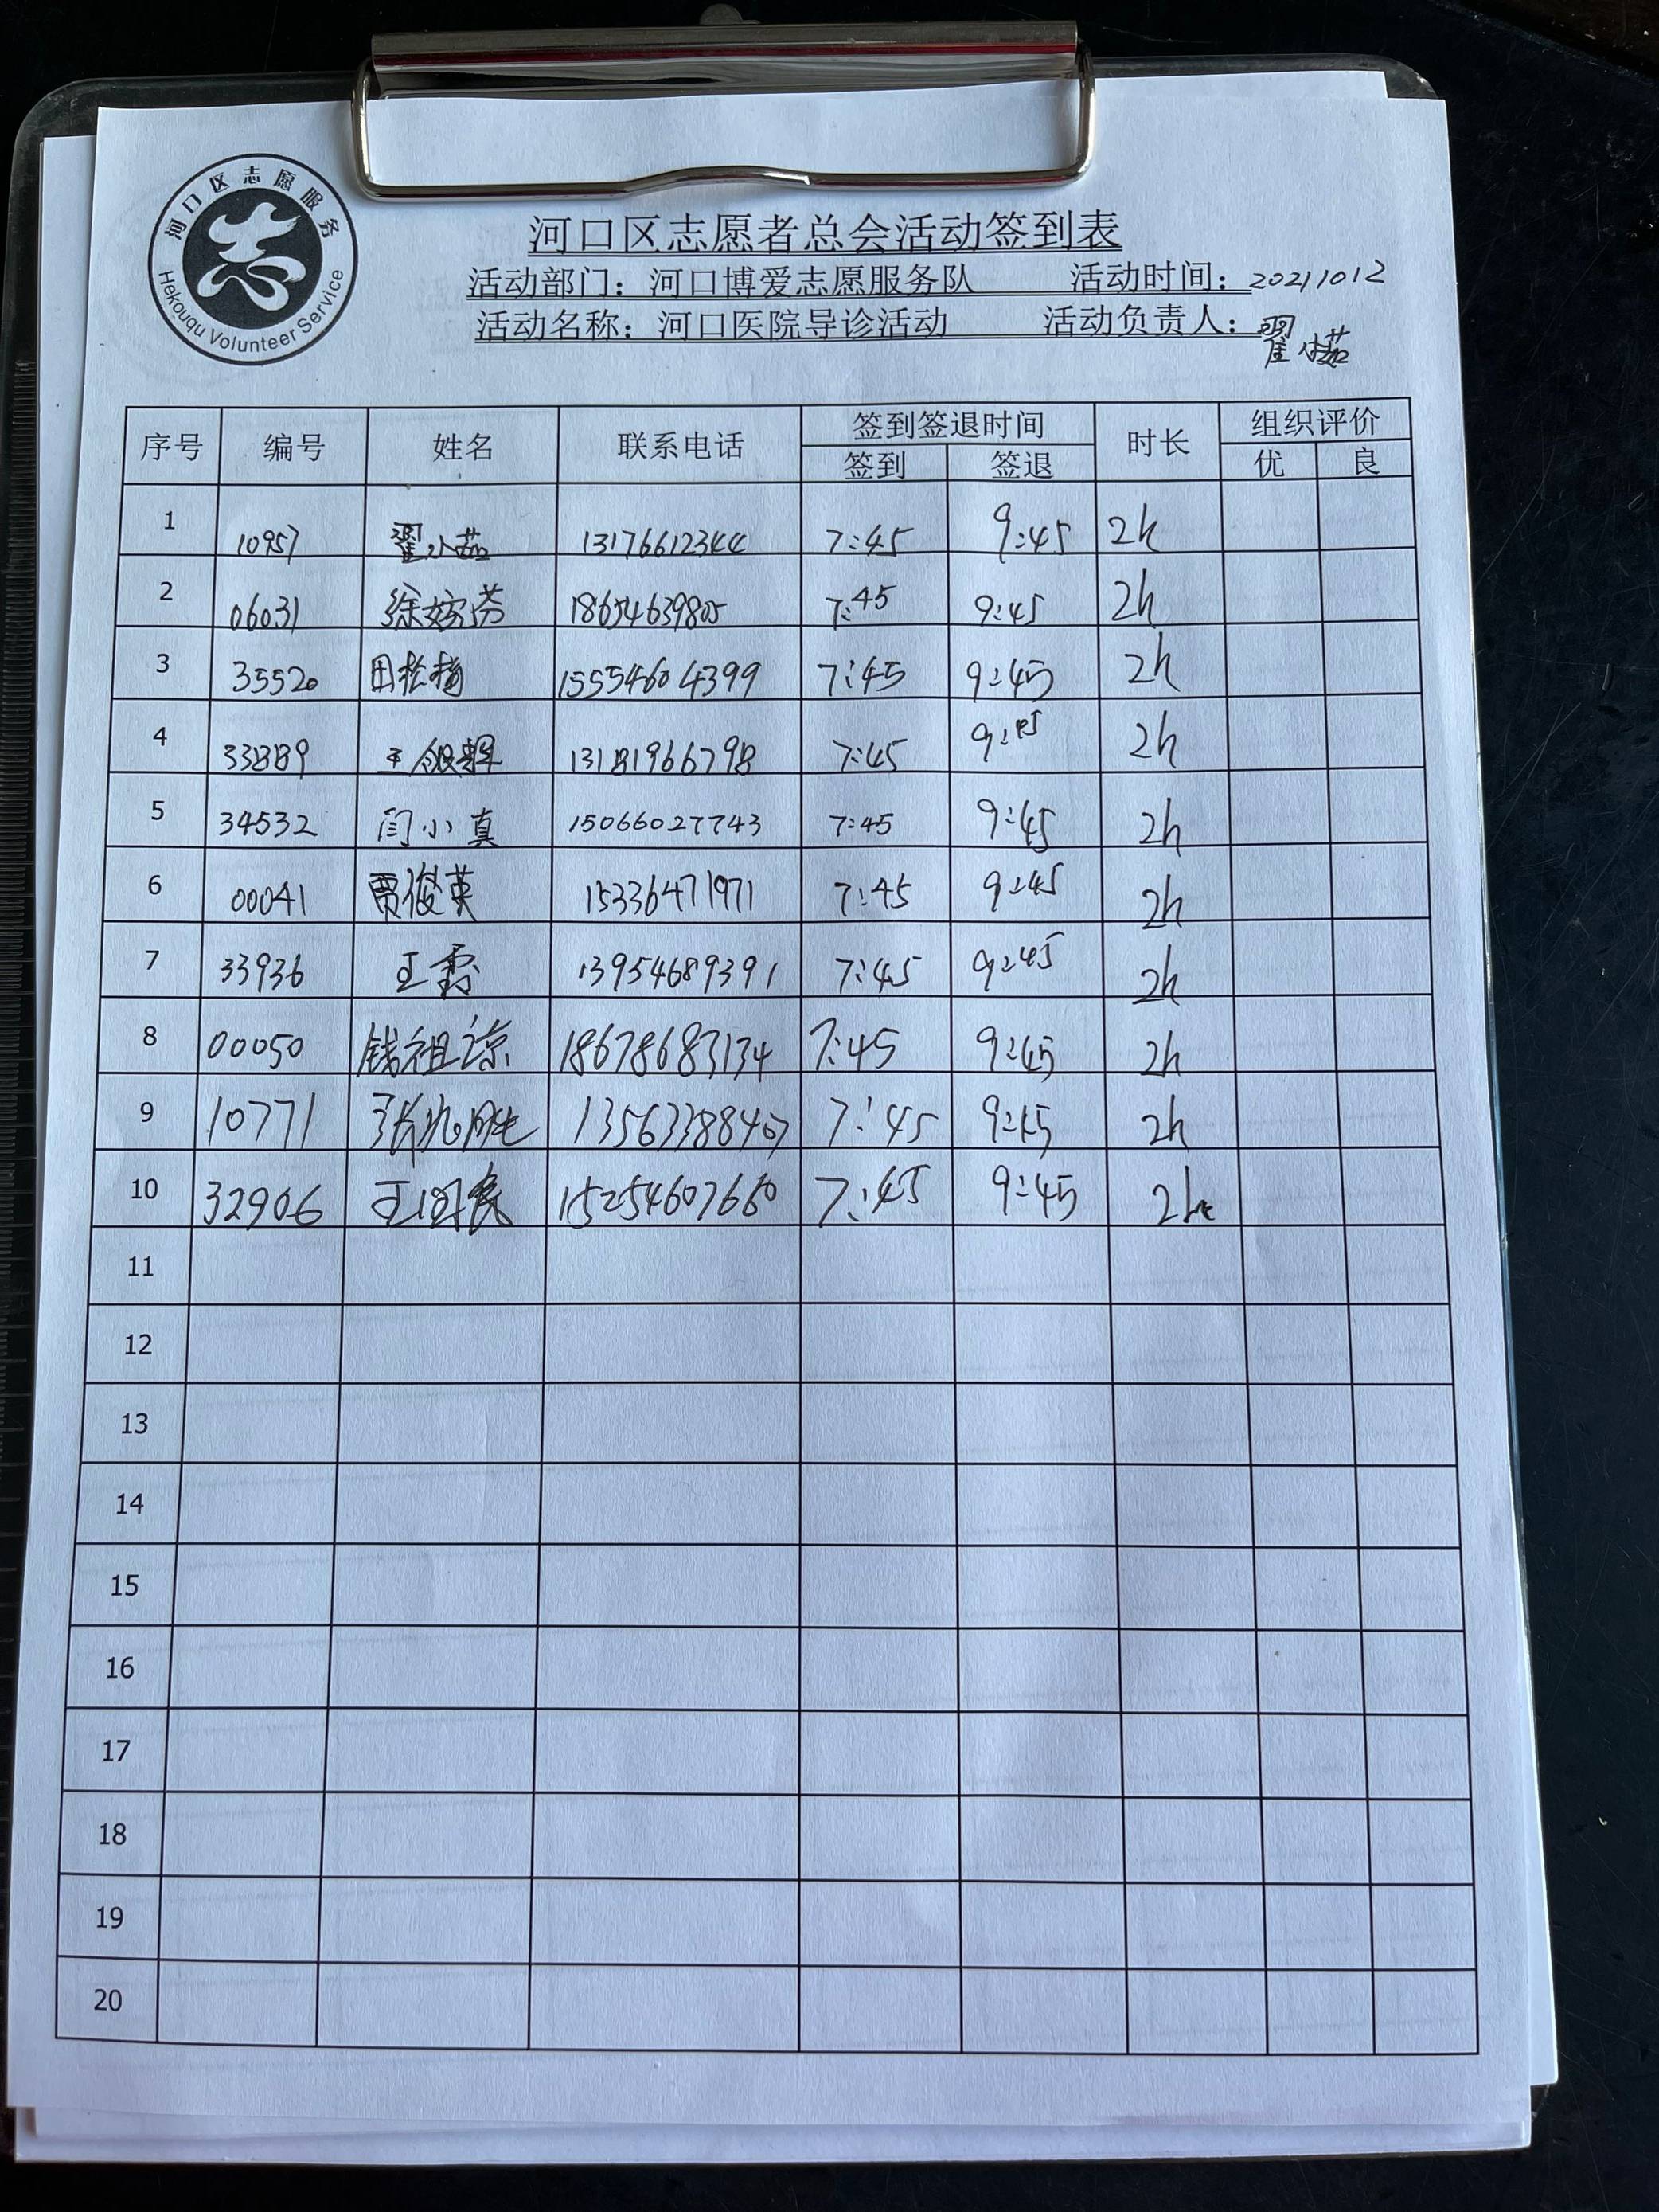 河口区志愿服务
Hekouqu Volunteer Service
河口区志愿者总会活动签到表
活动部门：河口博爱志愿服务队 活动时间：20211012
活动名称：河口医院导诊活动 活动负责人：翟小茹
序号 编号 姓名 联系电话 签到签退时间 时长 组织评价
签到 签退 优 良
1 10957 翟小茹 13176612344 7:45 9:45 2h
2 06031 徐婷芳 18654639805 7:45 9:45 2h
3 35520 田松梅 15554604399 7:45 9:45 2h
4 33889 王银辉 13181966798 7:45 9:45 2h
5 34532 闫小真 15066027743 7:45 9:45 2h
6 00041 贾俊英 15336471971 7:45 9:45 2h
7 33936 王霞 13954689391 7:45 9:45 2h
8 00050 钱祖谅 18678683134 7:45 9:45 2h
9 10771 张 13563388407 7:45 9:45 2h
10 32906 王国民 15254607660 7:45 9:45 2h
11
12
13
14
15
16
17
18
19
20